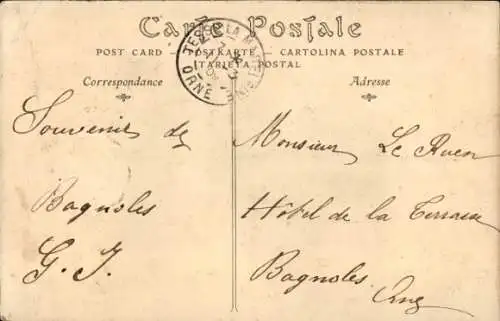 Carte Postale
POST CARD – POSTKARTE – CARTOLINA POSTALE
TARJETA POSTAL
TESSÉ LA MADELEINE
ORNE
Correspondance
Adresse
Souvenir de
Bagnoles
G. J.
Monsieur Le Ruen
Hôtel de la Terrasse
Bagnoles
Orne